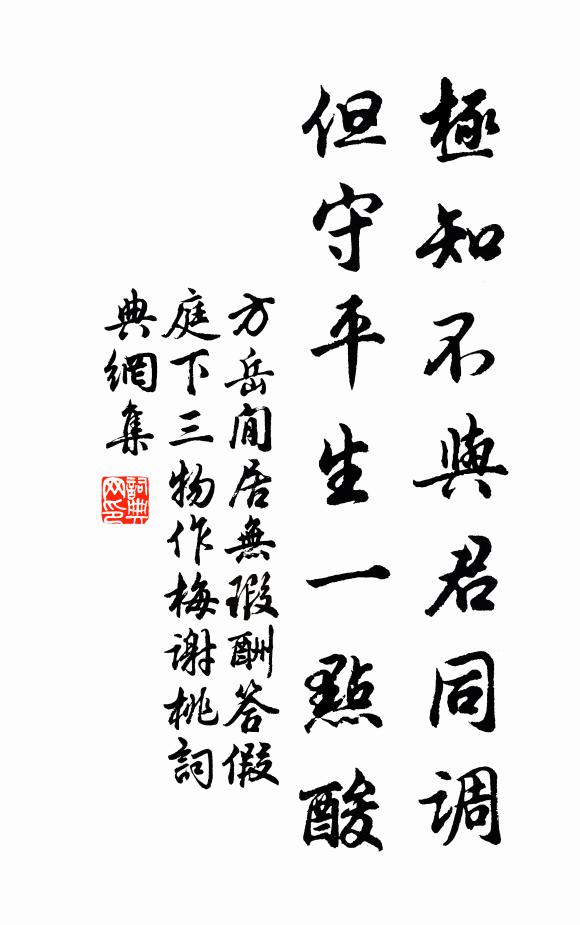 極知不與君同調
但守平生一點酸
方岳閒居無瑕酬答假
庭下三物作梅謝桃詞
典網集
詞典網印